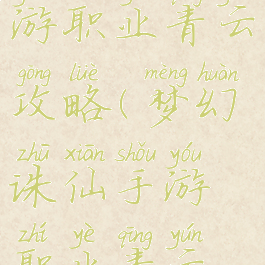 游职业青云
gōng lüè mèng huàn
攻略(梦幻
zhū xiān shǒu yóu
诛仙手游
zhí yè qīng yún
职业青云